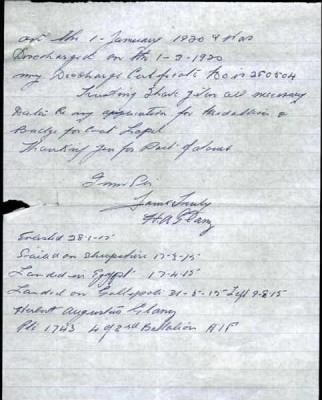 on the 1 - January 1920 & was
Discharged on the 1-2-1920
my Discharge Certificate No is 250504
Trusting that gives all necessary
Data Re my application for Medallion &
Badge for Coat Lapel
Thanking you for
I am Sir
Yours Truly
Enlisted 28-1-15
Sailed on Shropshire 17-3-15
Landed in Egypt 17-4-15
Landed on Gallipoli 31-5-15 Left 9-8-15
Herbert Augustus
Pte 1743 4 of 2nd Battalion AIF